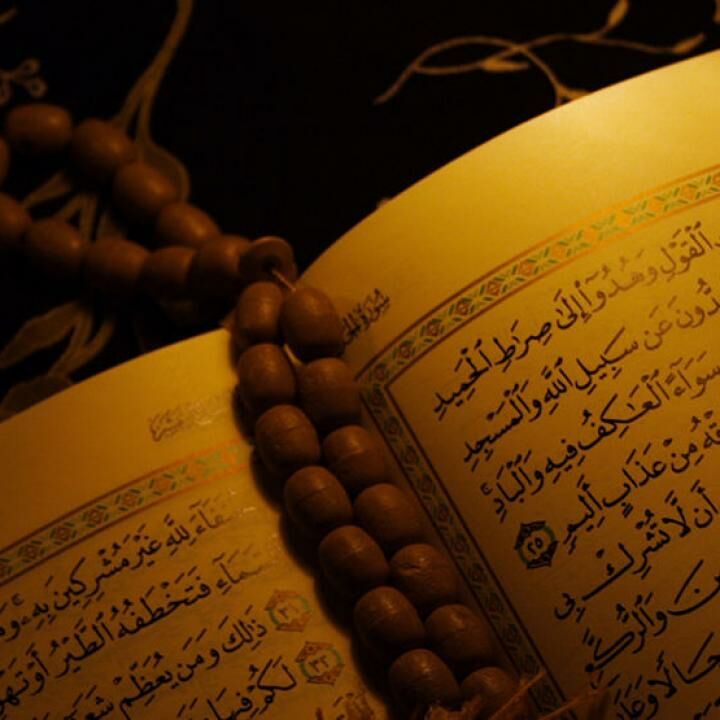 سُورَةُ الحَجِّ
ٱلْقَوْلِ وَهُدُوٓا۟ إِلَىٰ صِرَٰطِ ٱلْحَمِيدِ
دُّونَ عَن سَبِيلِ ٱللَّهِ وَٱلْمَسْجِدِ
سَوَآءً ٱلْعَٰكِفُ فِيهِ وَٱلْبَادِ ۚ
قْهُ مِنْ عَذَابٍ أَلِيمٍ ٢٥
أَن لَّا تُشْرِكْ بِى
ينَ وَٱلرُّكَّعِ
جَالًا وَعَلَىٰ
فَآءَ لِلَّهِ غَيْرَ مُشْرِكِينَ بِهِۦ ۚ وَمَ
سَّمَآءِ فَتَخْطَفُهُ ٱلطَّيْرُ أَوْ تَهْوِ
٣١ ذَٰلِكَ وَمَن يُعَظِّمْ شَعَ
٣٢ لَكُمْ فِيهَا